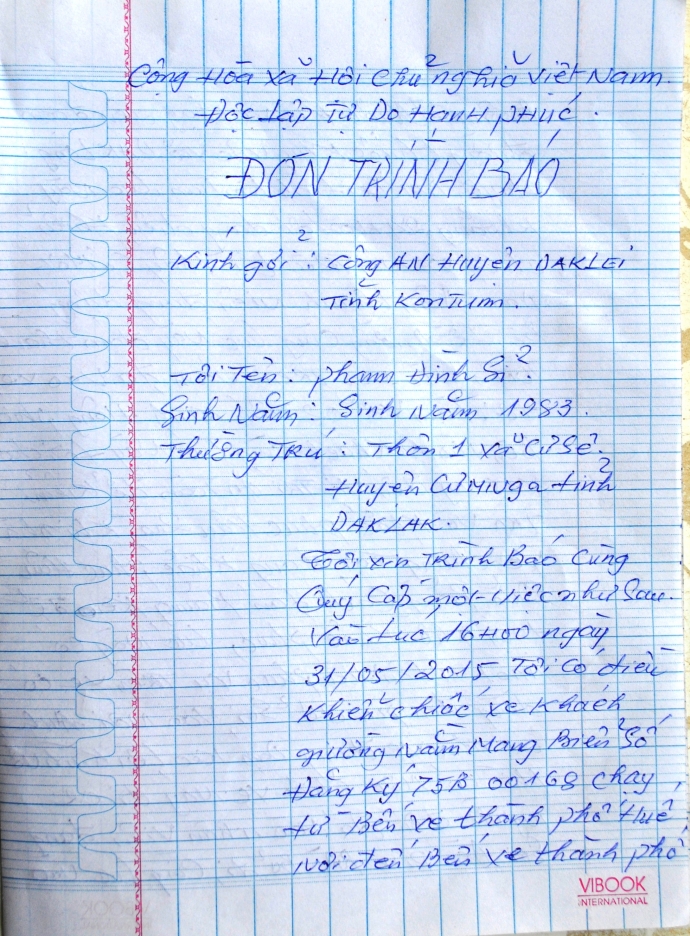 Cộng Hòa xã Hội Chủ nghĩa Việt Nam.
Độc Lập Tự Do Hạnh PHúC.
ĐƠN TRÌNH BÁO
Kính gởi : Công AN Huyện DAKLEI
Tỉnh KonTum.
Tôi Tên : phạm Đình Sỉ.
Sinh Năm : Sinh Năm 1983.
Thường TRú : Thôn 1 xã Cư Sê.
Huyện CưMNga tỉnh
DAKLAK.
Tôi xin TRình Báo Cùng
Quý Cấp một việc như Sau.
Vào Lúc 16H00 ngày
31/05/2015 Tôi có điều
Khiển chiếc xe Khách
giường Nằm Mang Biển Số
Đăng Ký 75B 00168 chạy
từ Bến xe thành phố Huế
Nơi đến Bến xe thành phố
VIBOOK
INTERNATIONAL